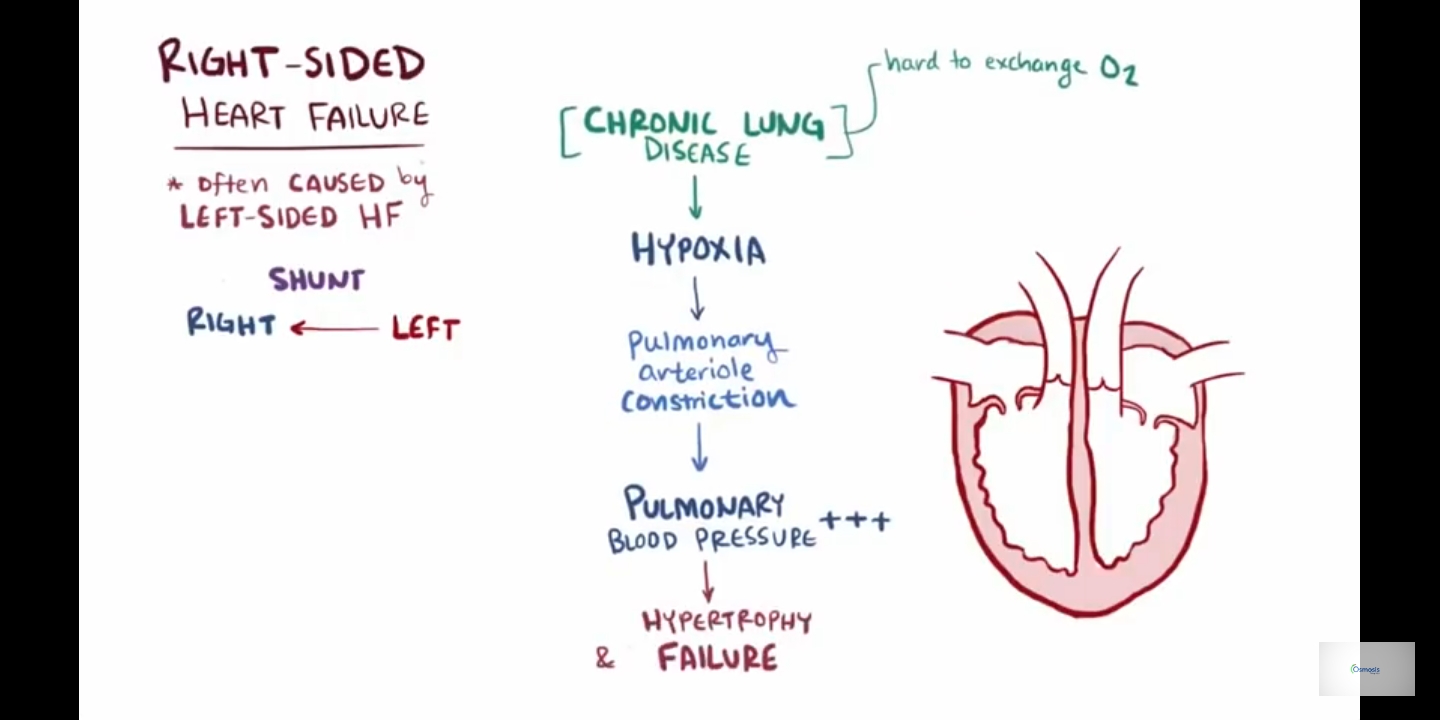 RIGHT-SIDED
HEART FAILURE
* often CAUSED by
LEFT-SIDED HF
SHUNT
RIGHT ← LEFT
hard to exchange O2
[CHRONIC LUNG
DISEASE]
↓
HYPOXIA
↓
Pulmonary
arteriole
constriction
↓
PULMONARY
BLOOD PRESSURE +++
↓
HYPERTROPHY
& FAILURE
Osmosis